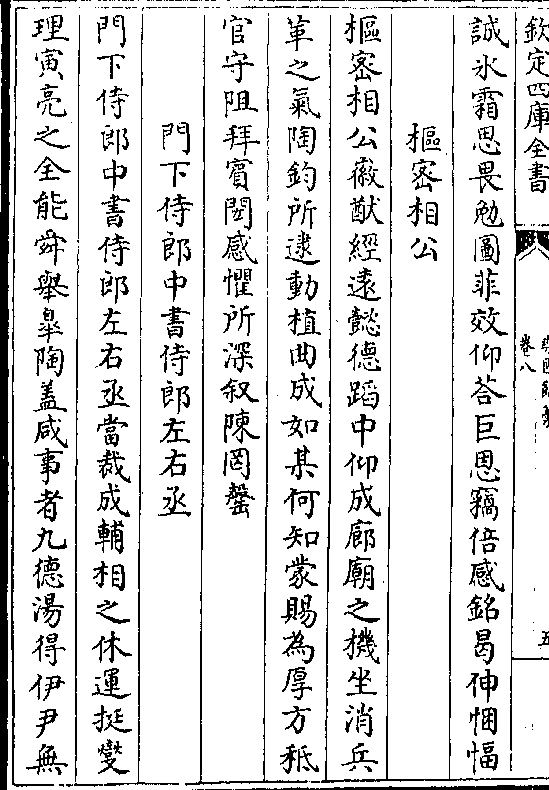 欽定四庫全書
卷八
五
誠氷霜思畏勉圖菲效仰荅巨恩竊倍感銘曷伸悃愊
樞密相公
樞密相公徽猷經遠懿德蹈中仰成廊廟之機坐消兵
革之氣陶鈞所逮動植曲成如某何知蒙賜為厚方秪
官守阻拜賓閎感懼所深叙陳罔罄
門下侍郎中書侍郎左右丞
門下侍郎中書侍郎左右丞當裁成輔相之休運挺燮
理寅亮之全能舜舉臯陶盖咸事者九德湯得伊尹無